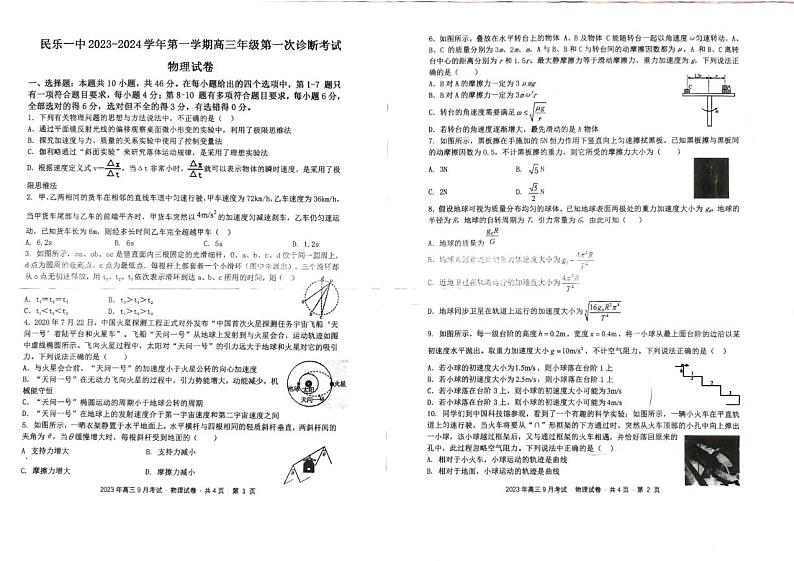 民乐一中2023-2024学年第一学期高三年级第一次诊断考试
物理试卷
一、选择题：本题共10小题，共46分。在每小题给出的四个选项中，第1-7题只
有一项符合题目要求，每小题4分；第8-10题有多项符合题目要求，每小题6分，
全部选对的得6分，选对但不全的得3分，有选错得0分。
1．下列有关物理问题的思想与方法说法中，不正确的是（ ）
A．通过平面镜反射光线的偏移观察桌面微小形变的实验中，利用了极限思维法
B．探究加速度与力、质量的关系实验中使用了控制变量法
C．伽利略通过“斜面实验”来研究落体运动规律，是采用了理想实验法
D．根据速度定义式 v=Δx/Δt，当Δt非常小时，Δx/Δt就可以表示物体的瞬时速度，是采用了极
限思维法
2．甲、乙两相同的货车在相邻的直线车道中匀速行驶，甲车速度为72km/h，乙车速度为36km/h，
当甲货车尾部与乙车的前端平齐时，甲货车突然以4m/s²的加速度匀减速刹车，乙车仍匀速运
动，已知货车长为6m，则经多长时间乙车完全超越甲车（ ）
A．6.2s B．6s C．5s D．1.2s
3．如图所示，oa、ob、oc是竖直面内三根固定的光滑细杆，O、a、b、c、d位于同一圆周上，
d点为圆周的最高点，c点为最低点．每根杆上都套着一个小滑环（图中未画出），三个滑环都
从o点无初速释放，用t₁、t₂、t₃依次表示滑环到达a、b、c所用的时间，则（ ）
A．t₁=t₂=t₃ B．t₁>t₂>t₃
C．t₁<t₂<t₃ D．t₃>t₁>t₂
4．2020年7月22日，中国火星探测工程正式对外发布“中国首次火星探测任务宇宙飞船‘天
问一号’着陆平台和火星车”。飞船“天问一号”从地球上发射到与火星会合，运动轨迹如图
中虚线椭圆所示。飞向火星过程中，太阳对“天问一号”的引力远大于地球和火星对它的吸引
力。下列说法正确的是（ ）
A．与火星会合前，“天问一号”的加速度小于火星公转的向心加速度
B．“天问一号”在无动力飞向火星的过程中，引力势能增大，动能减少，机
械能守恒
C．“天问一号”椭圆运动的周期小于地球公转的周期
D．“天问一号”在地球上的发射速度介于第一宇宙速度和第二宇宙速度之间
地球 太阳 火星
天问一号
5．如图所示，一晒衣架静置于水平地上，水平横杆与四根相同的轻质斜杆垂直，两斜杆间的
夹角为θ，当θ缓慢增大时，每根斜杆受到地面的（ ）
A 支持力增大 B．支持力减小
C．摩擦力增大 D．摩擦力减小
2023年高三9月考试·物理试卷·共4页·第1页
6．如图所示，叠放在水平转台上的物体A、B及物体C能随转台一起以角速度ω匀速转动，A、
B、C的质量分别为3m、2m、m，A与B、B和C与转台间的动摩擦因数都为μ，A和B、C离转
台中心的距离分别为r和1.5r。最大静摩擦力等于滑动摩擦力，重力加速度为g，下列说法正
确的是（ ）
A．B对A的摩擦力一定为3μmg
B．B对A的摩擦力一定为3mω²r
C．转台的角速度需要满足ω≤√(μg/r)
D．若转台的角速度逐渐增大，最先滑动的是A物体
7．如图所示，黑板擦在手施加的5N恒力作用下竖直向上匀速擦拭黑板，已知黑板擦与黑板间
的动摩擦因数为0.5，不计黑板擦的重力，则它所受的摩擦力大小为（ ）
A．3N B．√5 N
C．2N D．√5/2 N
8．假设地球可视为质量分布均匀的球体。已知地球表面两极处的重力加速度大小为g₀，地球的
半径为R，地球的自转周期为T，引力常量为G，由此可知（ ）
A．地球的质量为g₀R/G
B．地球表面赤道处的重力加速度大小为g₀−4π²R/T²
C．近地卫星在轨道运行的加速度大小为4π²R/T²
D．地球同步卫星在轨道上运行的加速度大小为∛(16g₀R²π⁴/T⁴)
9．如图所示，每一级台阶的高度h=0.2m，宽度x=0.4m，将一小球从最上面台阶的边沿以某
初速度水平抛出。取重力加速度大小g=10m/s²，不计空气阻力。下列说法正确的是（ ）
A．若小球的初速度大小为1.5m/s，则小球落在台阶1上
B．若小球的初速度大小为2.5m/s，则小球落在台阶1上
C．若小球落在台阶3上，则小球的初速度大小可能为3m/s
D．若小球落在台阶3上，则小球的初速度大小可能为4m/s
10．同学们到中国科技馆参观，看到了一个有趣的科学实验：如图所示，一辆小火车在平直轨
道上匀速行驶，当火车将要从“∩”形框架的下方通过时，突然从火车顶部的小孔中向上弹出
一小球，该小球越过框架后，又与通过框架的火车相遇，并恰好落回原来的
孔中．此过程忽略空气阻力，下列说法中正确的是（ ）
A．相对于小火车，小球运动的轨迹是曲线
B．相对于地面，小球运动的轨迹是曲线
2023年高三9月考试·物理试卷·共4页·第2页